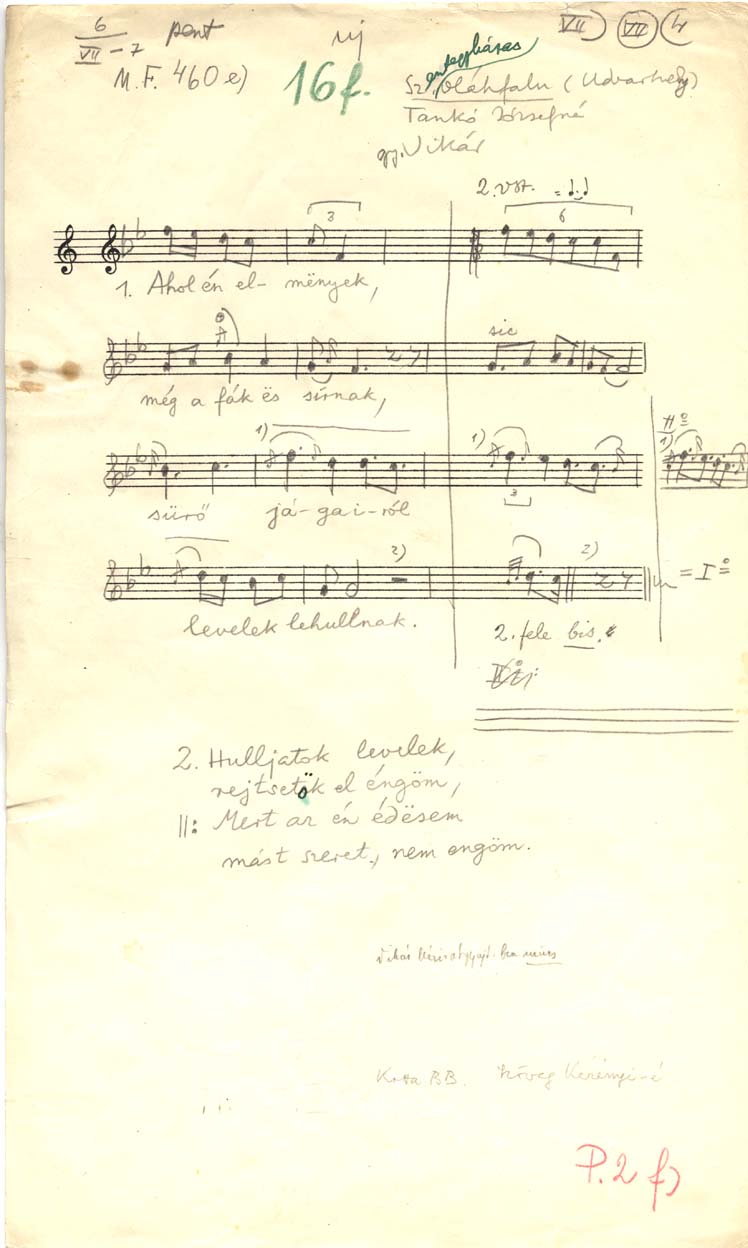 6
VII - 7
pent
új
VII) (VII) (4
M.F. 460 e)
16 f.
Szentegyházas
oláhfalu (Udvarhely)
Tankó Józsefné
gy. Vikár
2. vsz.
3
6
1. Ahol én el- mënyek,
sic
még a fák ës sírnak,
1)
1)
1)
3
sürő já-ga-i-ról
2)
2)
= I
levelek lehullnak.
2. fele bis.
2. Hulljatok levelek,
rejtsetök el éngöm,
||: Mert az én édësem
mást szeret, nem engöm.
Vikár kéziratgyűjt.-ben nincs
Kotta BB. Szöveg Kerényi-é
P. 2 f)